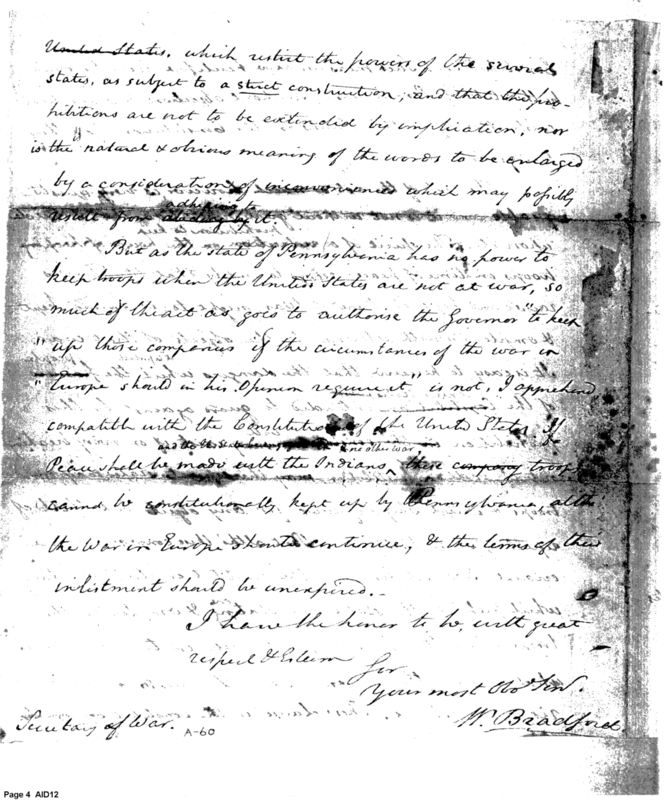 United States, which restrict the powers of the several
states, as subject to a strict construction; and that the pro-
hibitions are not to be extended by implication; nor
is the natural & obvious meaning of the words to be enlarged
by a consideration of inconveniences which may possibly
adhering to
result from abiding by it.
But as the state of Pennsylvania has no power to
keep troops when the United States are not at war, so
much of the act as goes to authorise the Governor "to keep
"up those companies if the circumstances of the war in
"Europe should in his Opinion require it" is not, I apprehend,
compatible with the Constitution of the United States. If
and the United States be engaged in no other war,
Peace shall be made with the Indians, these company troops
cannot be constitutionally kept up by Pennsylvania, altho
the War in Europe should continue, & the terms of their
inlistment should be unexpired.-
I have the honor to be, with great
respect & Esteem
Sir
Your most Obt Servt.
Wm. Bradford.
Secretary of War.
A-60
Page 4 AID12